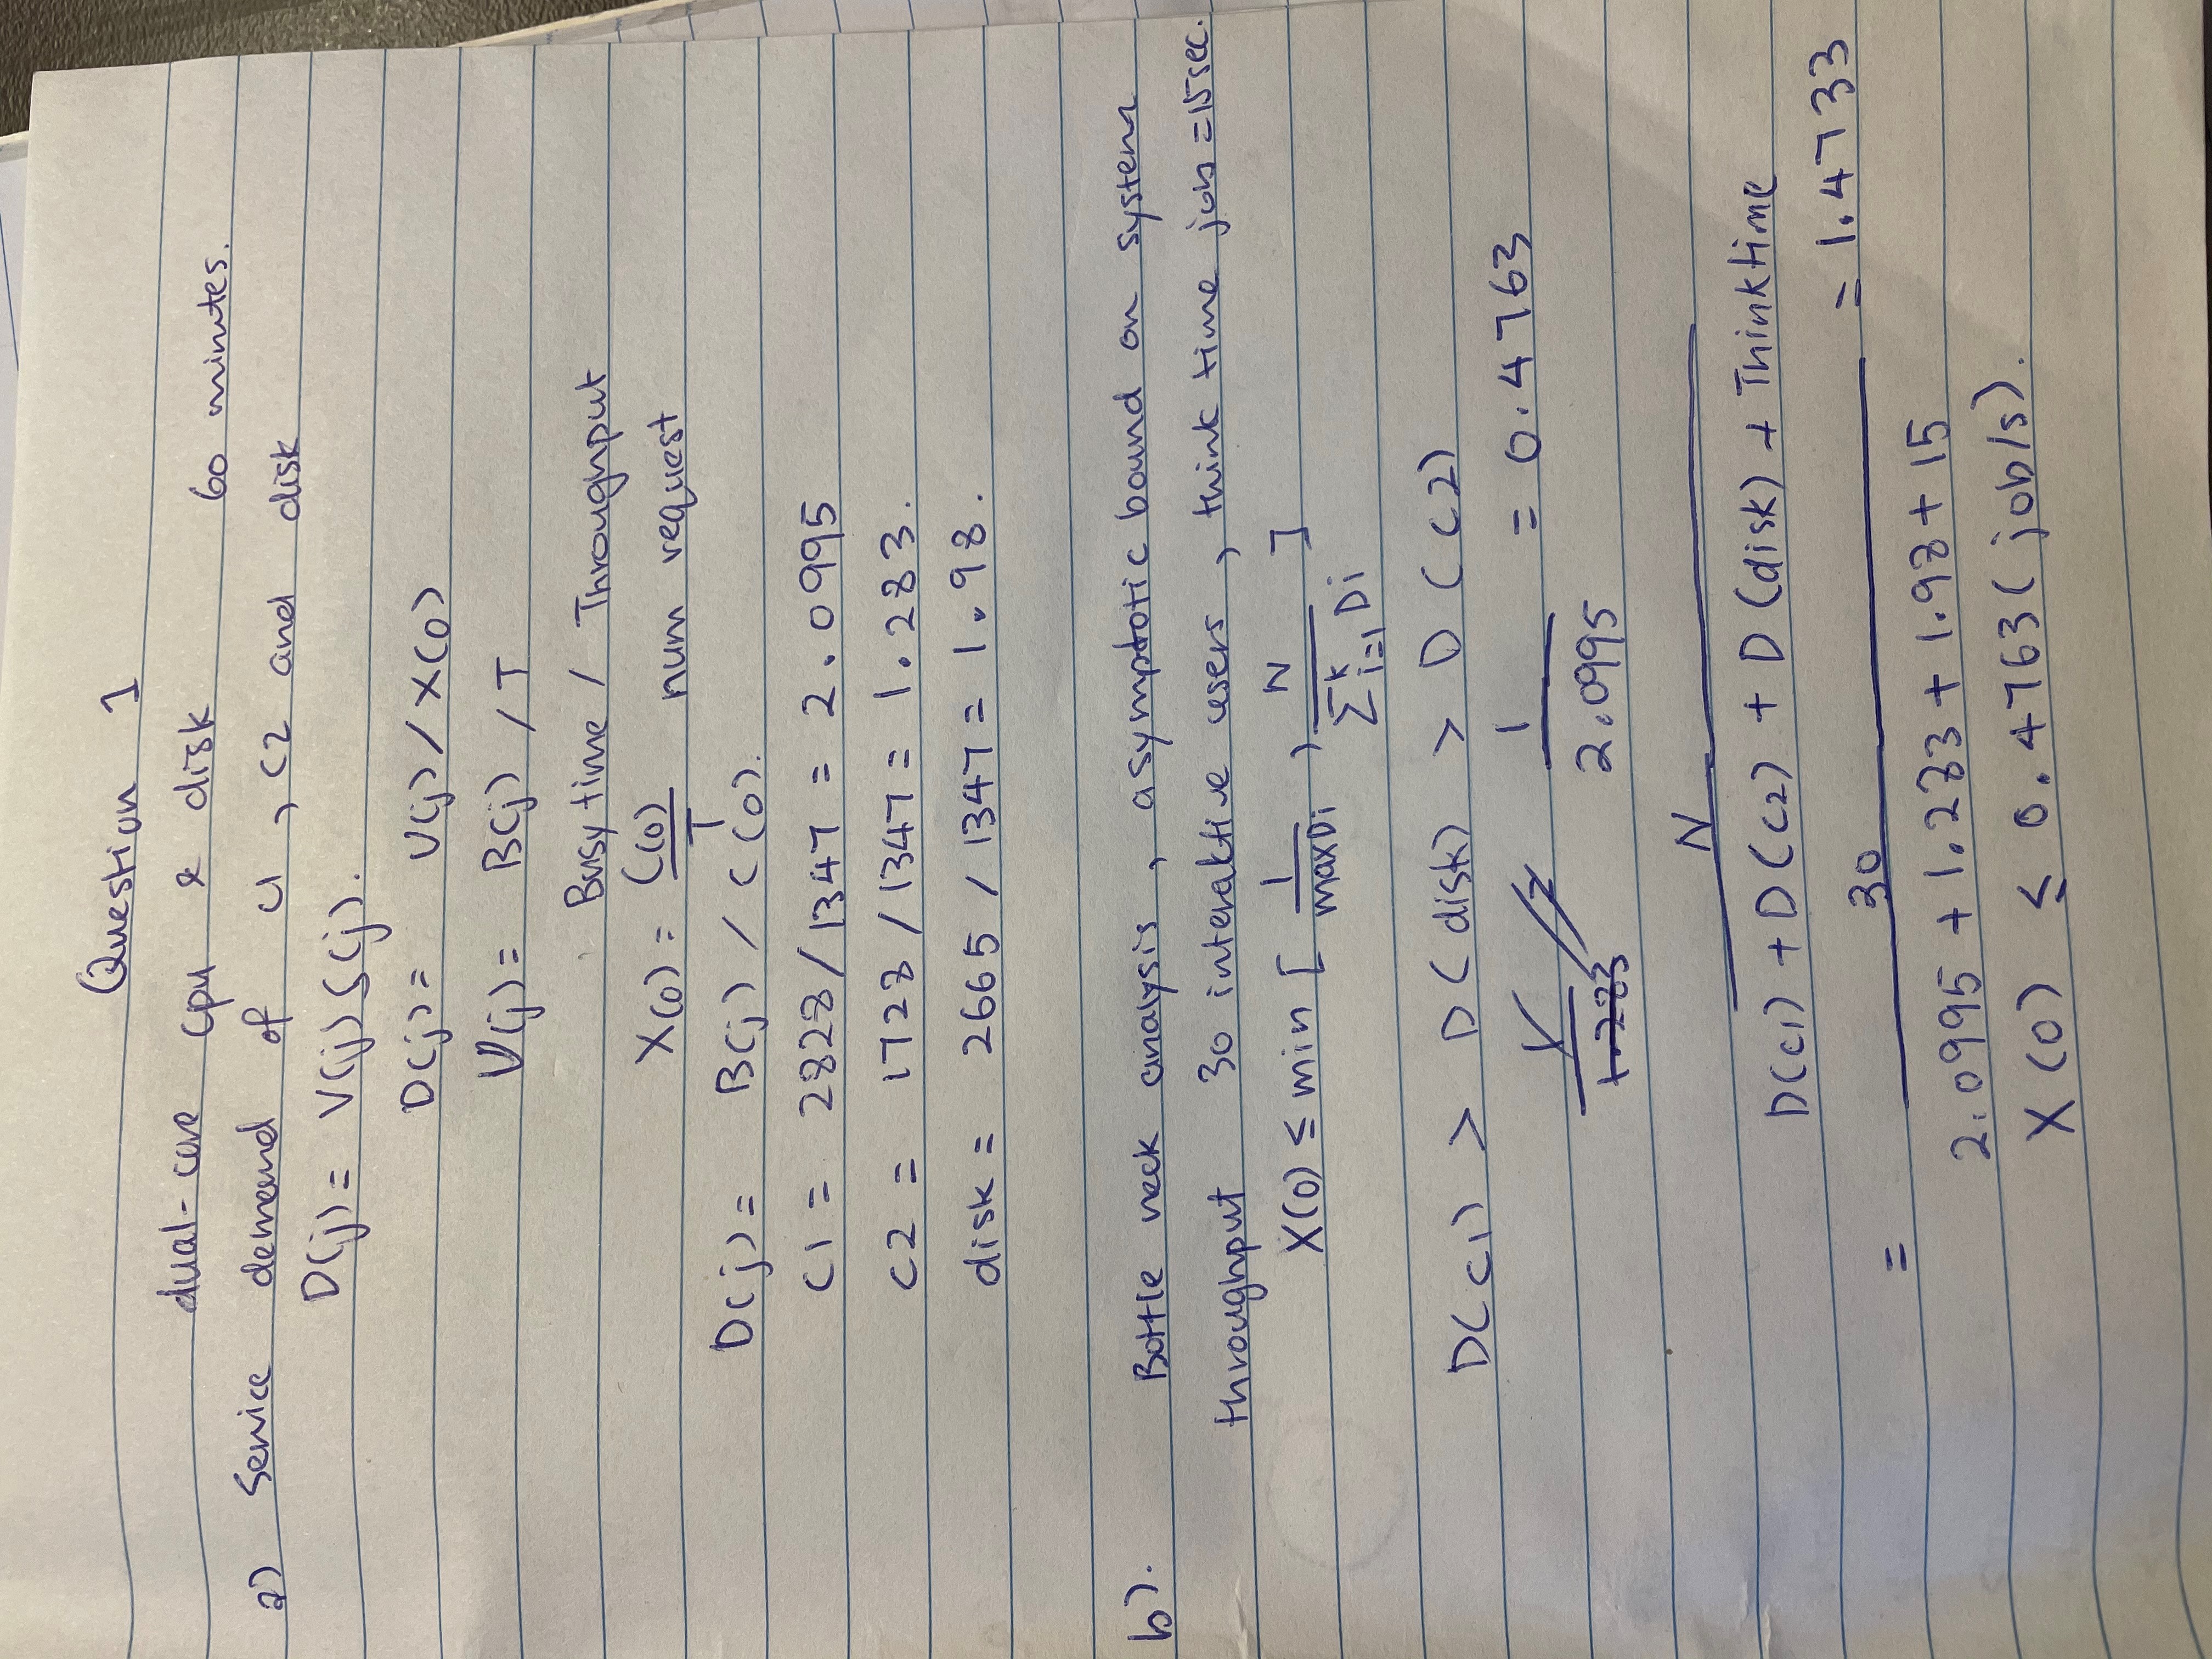 Question 1
dual-core cpu & disk 60 minutes.
a) Service demand of c1, c2 and disk
D(j) = V(j) S(j).
D(j) = U(j) / X(0)
U(j) = B(j) / T
Busy time / Throughput
X(0) = C(0) / T num request
D(j) = B(j) / C(0).
C1 = 2828 / 1347 = 2.0995
C2 = 1728 / 1347 = 1.283.
disk = 2665 / 1347 = 1.98.
b). Bottle neck analysis, asymptotic bound on system
throughput 30 interaktive users, think time job = 15 sec.
X(0) ≤ min [ 1 / max Di , N / Σ^k i=1 Di ]
D(c1) > D(disk) > D(c2)
1 / 1.283 1 / 2.0995 = 0.4763
N
D(c1) + D(c2) + D(disk) + Thinktime
= 30 = 1.4733
2.0995 + 1.283 + 1.98 + 15
X(0) ≤ 0.4763 (job/s).